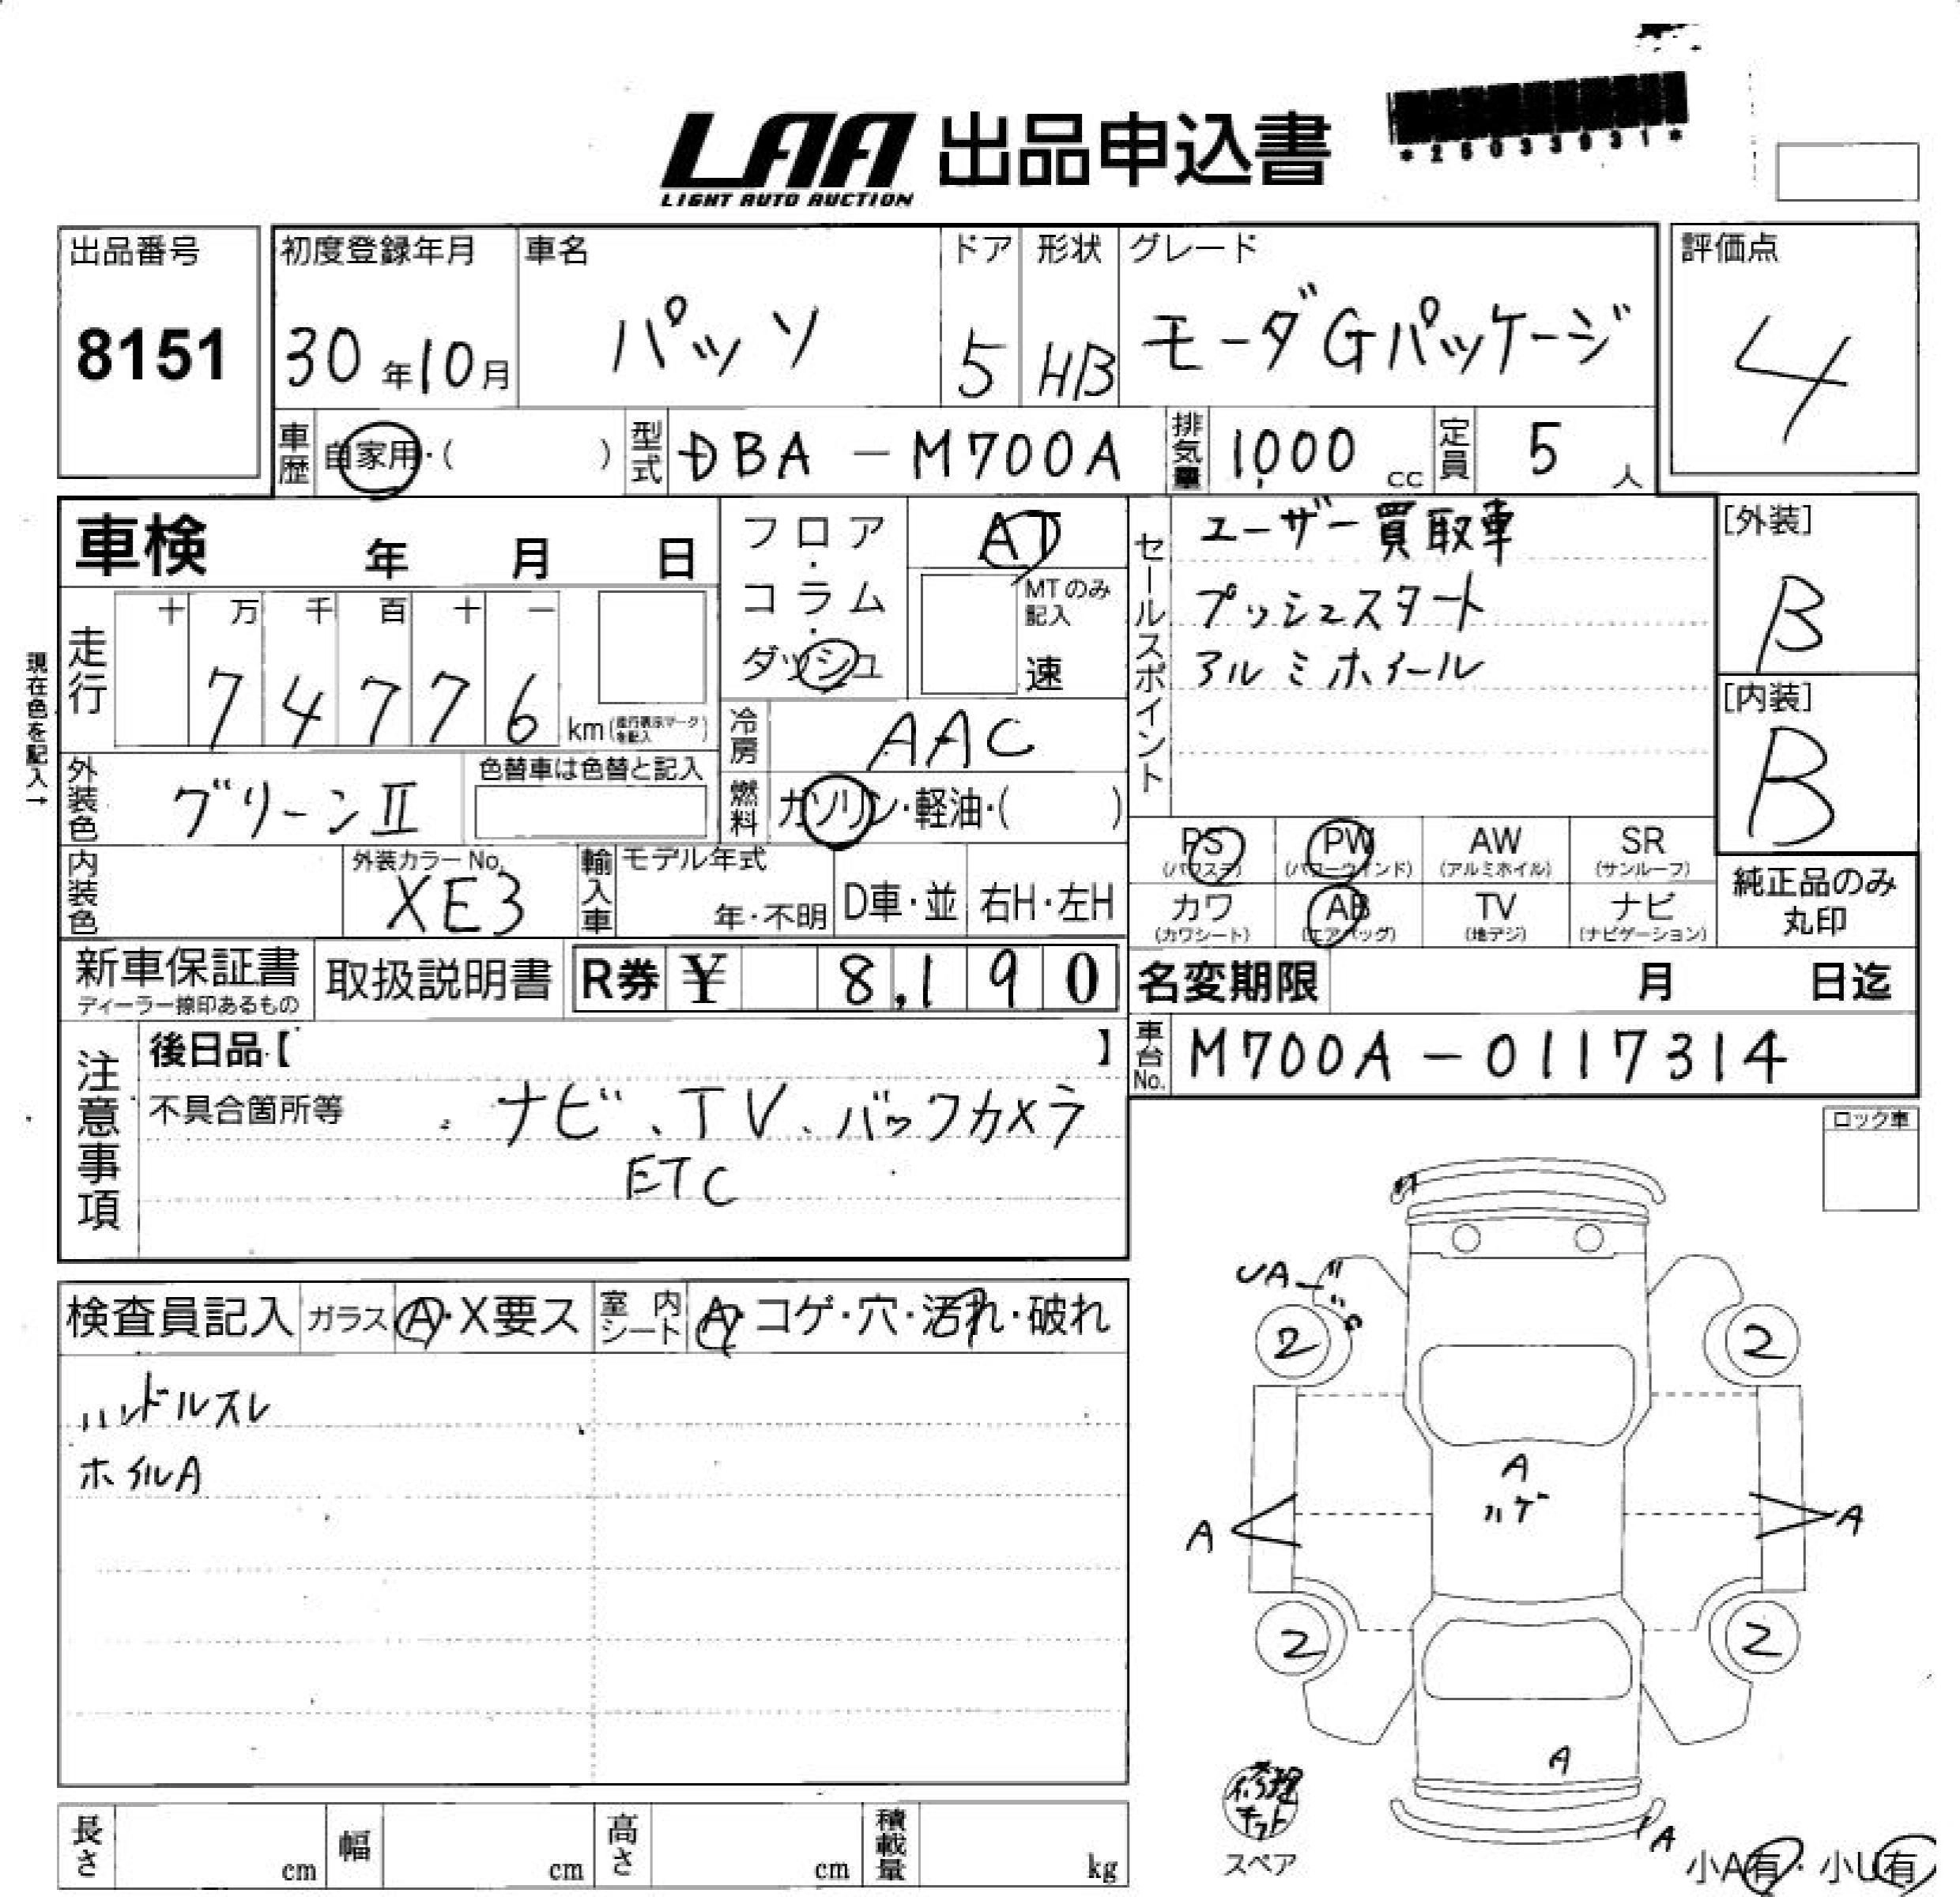 LAA 出品申込書
LIGHT AUTO AUCTION
*25033931*
出品番号
8151
初度登録年月
30年10月
車名
パッソ
ドア
5
形状
HB
グレード
モーダGパッケージ
評価点
4
車歴
自家用・( )
型式
DBA-M700A
排気量
1,000 cc
定員
5 人
車検 年 月 日
フロア・コラム・ダッシュ
AT
MTのみ記入
速
セールスポイント
ユーザー買取車
プッシュスタート
アルミホイール
[外装]
B
[内装]
B
現在色を記入→
走行
十 万 千 百 十 一
7 4 7 7 6 km(走行表示マークを記入)
冷房
AAC
外装色
グリーンⅡ
色替車は色替と記入
燃料
ガソリン・軽油・( )
内装色
外装カラーNo.
XE3
輸入車
モデル年式
年・不明
D車・並
右H・左H
PS (パワステ)
PW (パワーウインド)
AW (アルミホイル)
SR (サンルーフ)
カワ (カワシート)
AB (エアバッグ)
TV (地デジ)
ナビ (ナビゲーション)
純正品のみ丸印
新車保証書
ディーラー捺印あるもの
取扱説明書
R券 ¥ 8,190
名変期限 月 日迄
車台No.
M700A-0117314
注意事項
後日品【 】
不具合箇所等
ナビ、TV、バックカメラ
ETC
ロック車
検査員記入
ガラス A・X要ス
室内シート A・コゲ・穴・汚れ・破れ
ハンドルスレ
ホイルA
UA
2
2
A
ハゲ
A
A
2
2
A
A
修理キット
スペア
小A有・小U有
長さ cm
幅 cm
高さ cm
積載量 kg